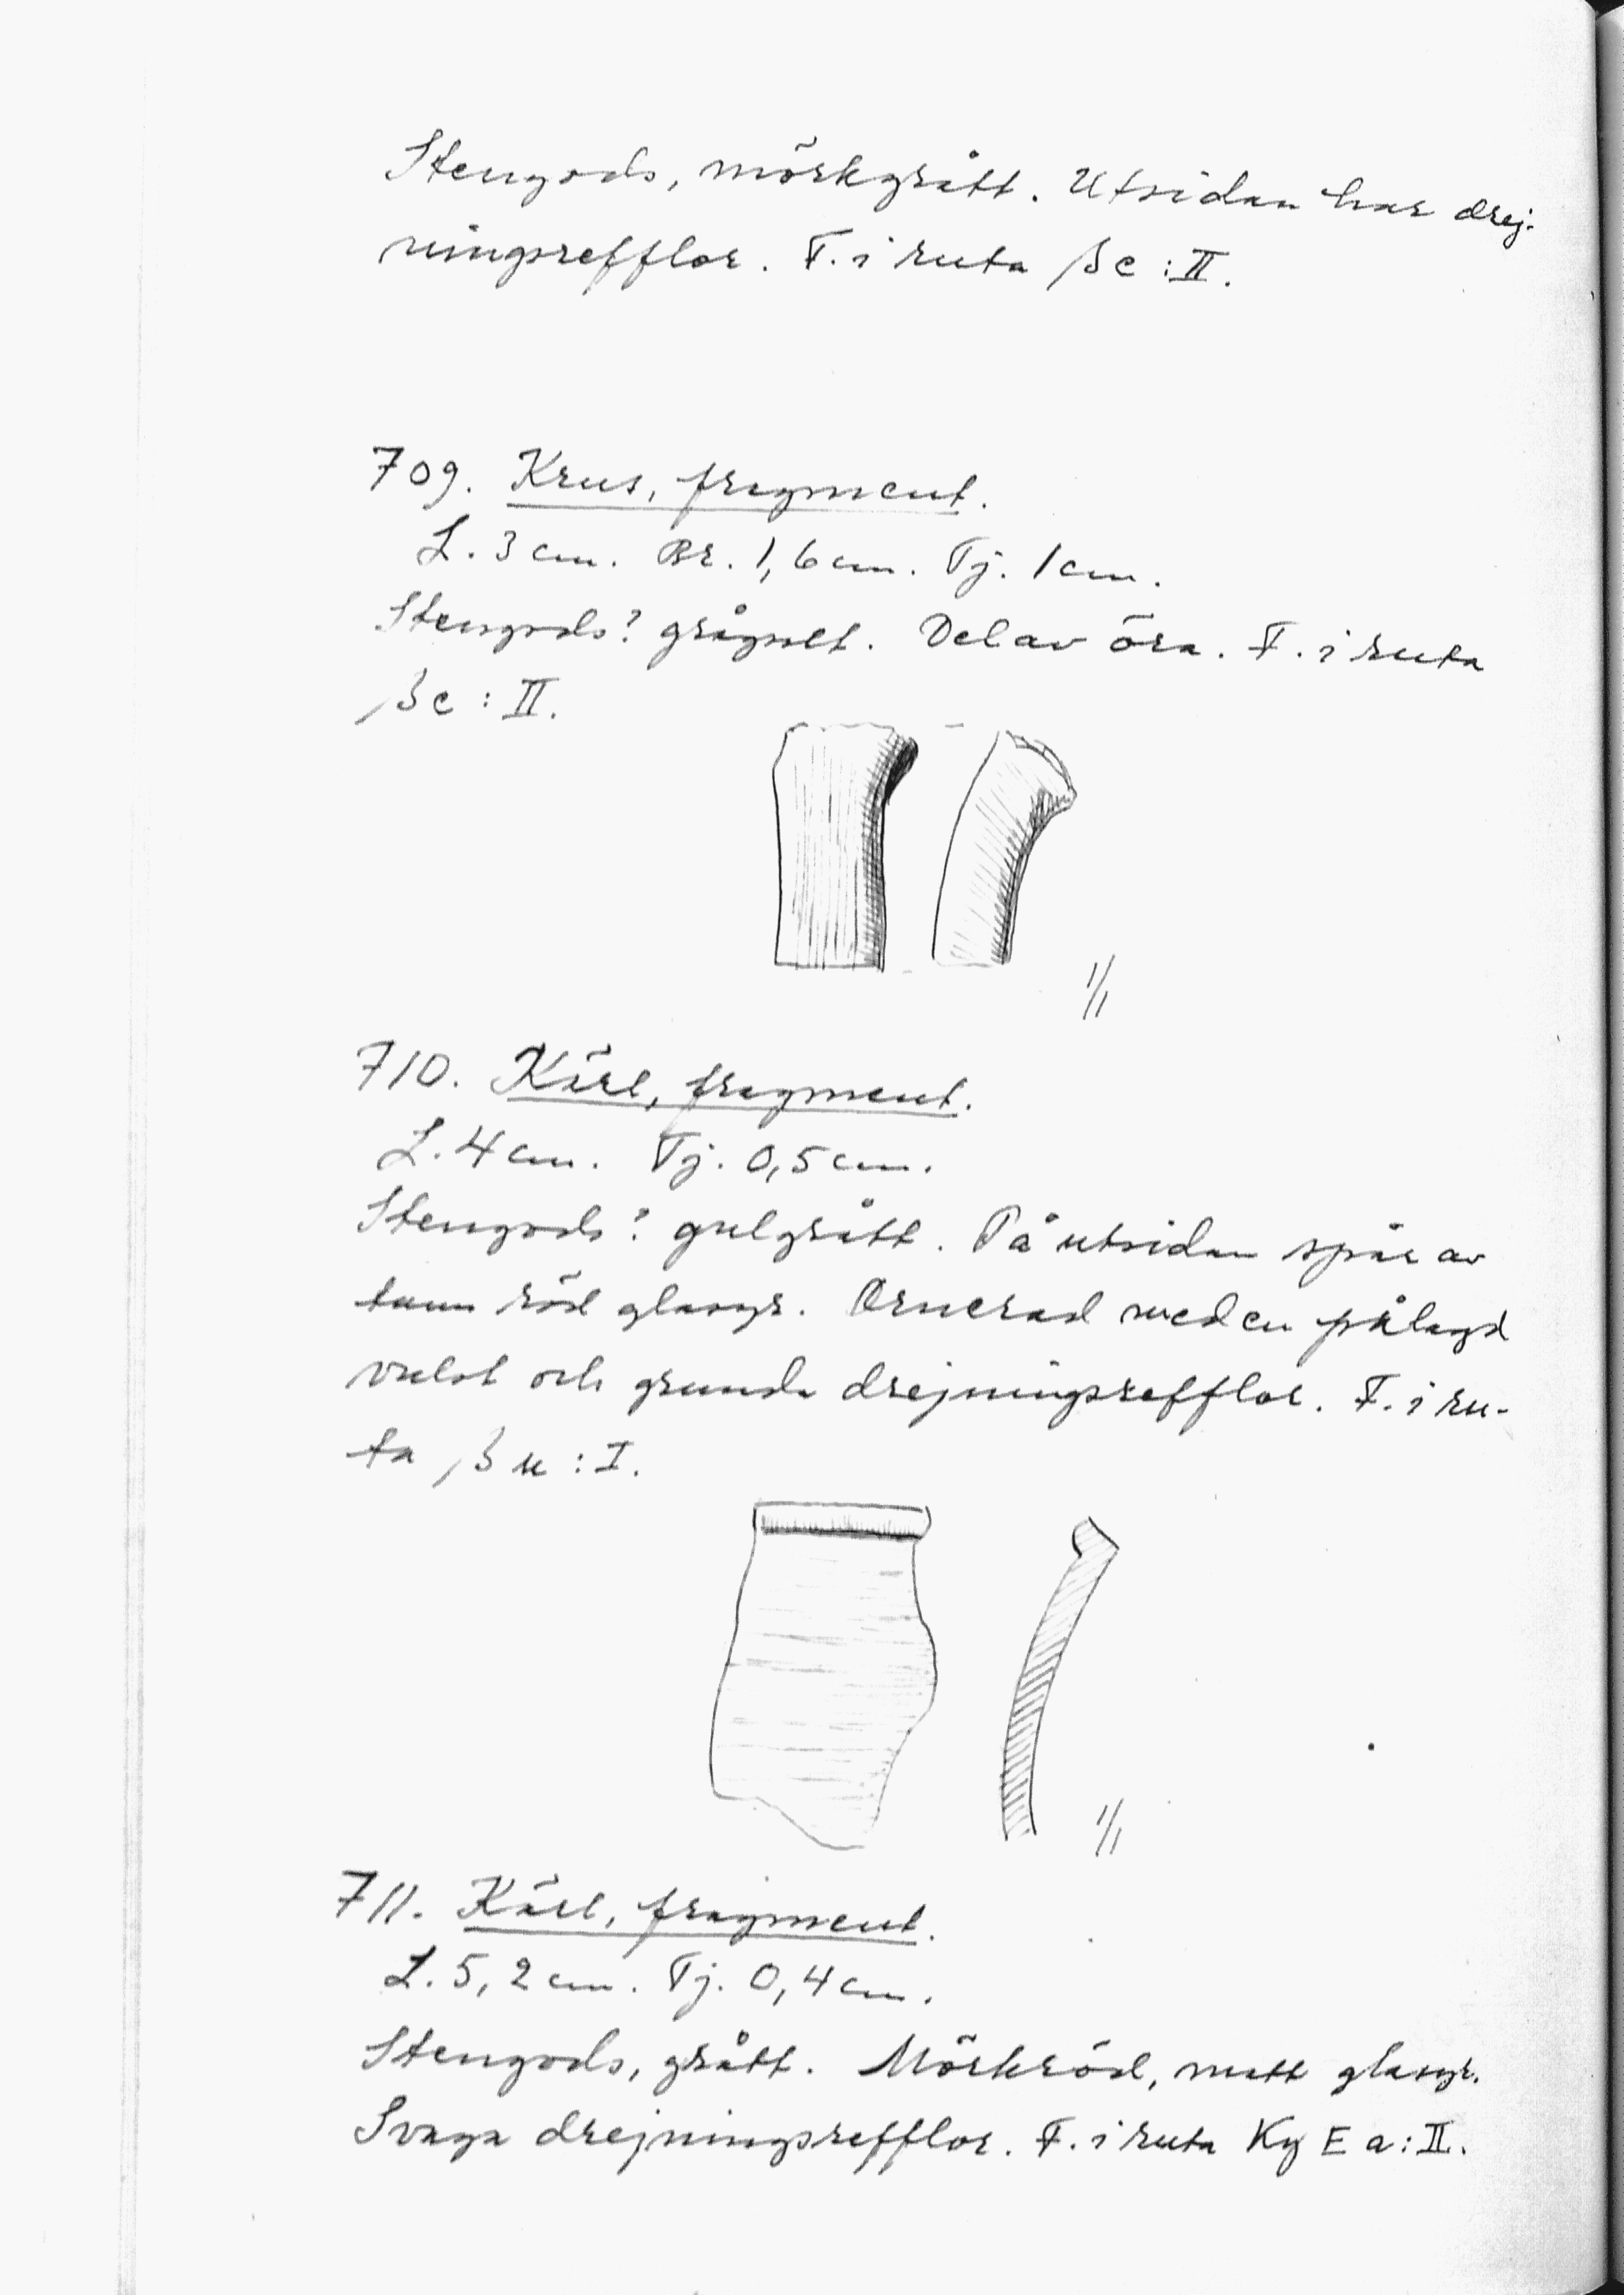 Stengods, mörkgrått. Utsidan har drej-
ningsrefflor. F. i ruta βc:II.
709. Krus, fragment.
L. 3 cm. Br. 1,6 cm. Tj. 1 cm.
Stengods? grågult. Del av öra. F. i ruta
βc:II.
1/1
710. Kärl, fragment.
L. 4 cm. Tj. 0,5 cm.
Stengods? gulgrått. På utsidan spår av
tunn röd glasyr. Ornerad med en pålagd
vulst och grunda drejningsrefflor. F. i ru-
ta βu:I.
1/1
711. Kärl, fragment.
L. 5,2 cm. Tj. 0,4 cm.
Stengods, grått. Mörkröd, matt glasyr.
Svaga drejningsrefflor. F. i ruta Ky E a:II.